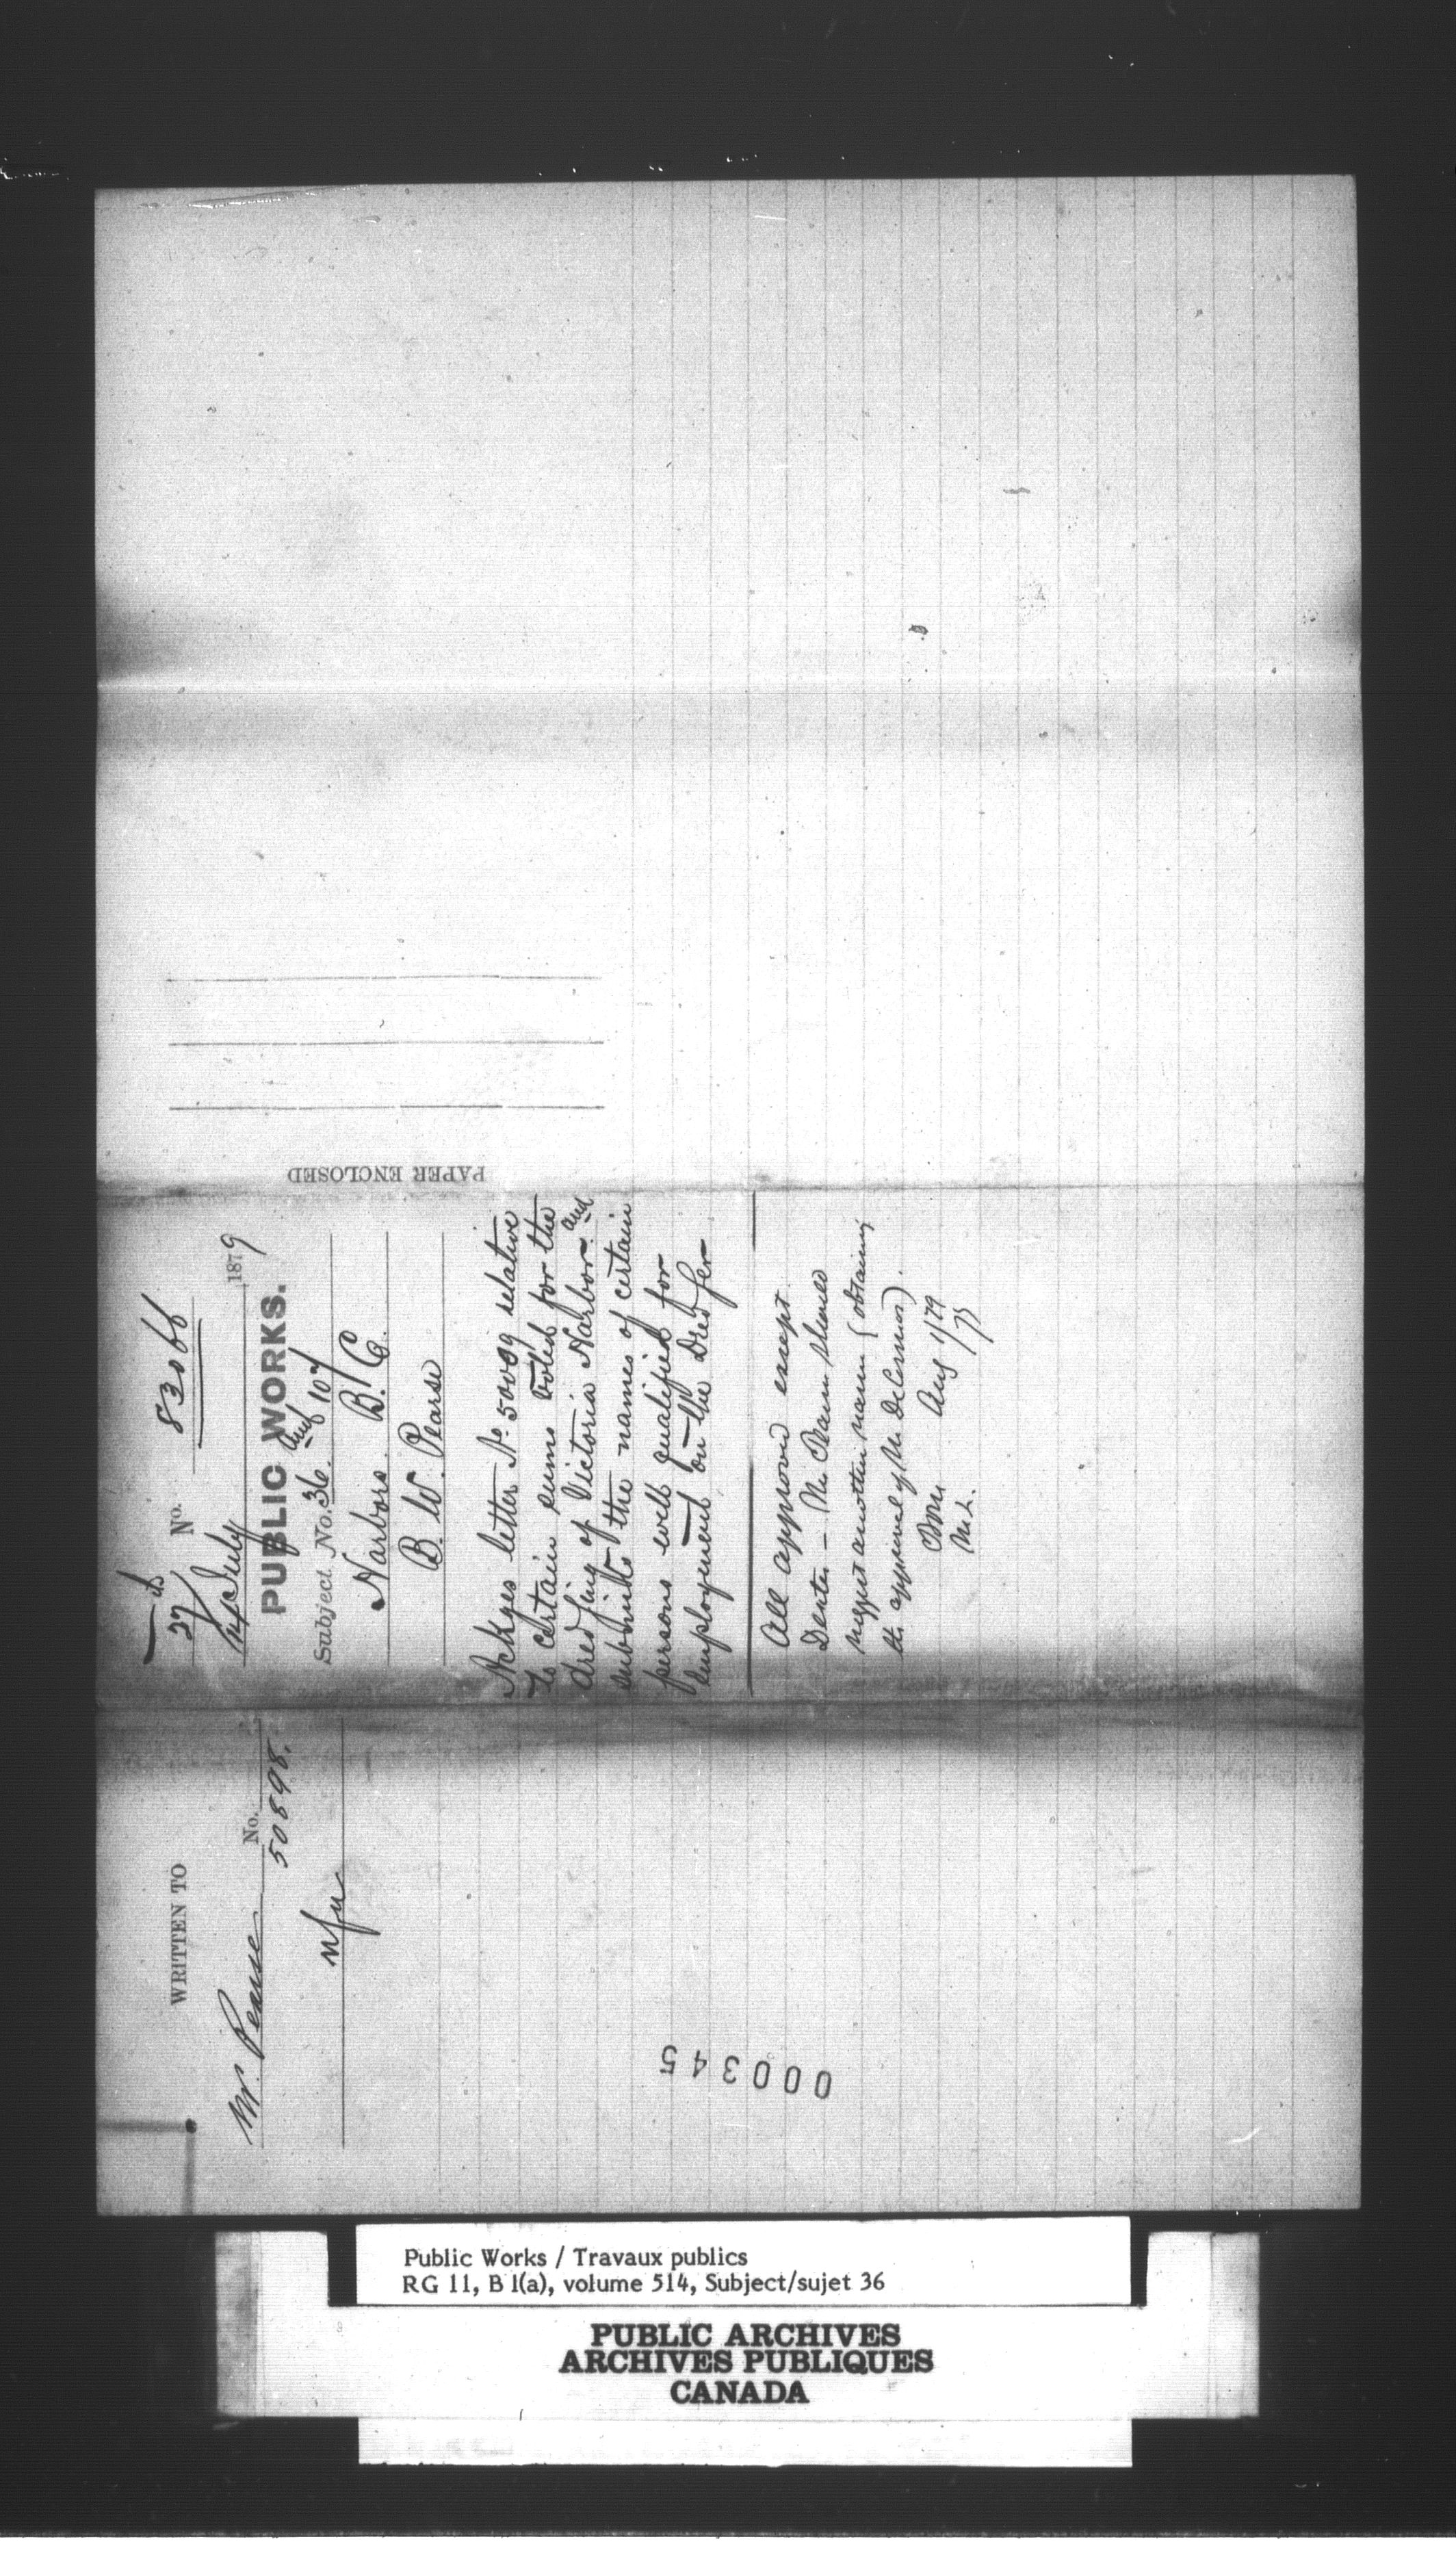 27 No. 83066
14 July 1879
PUBLIC WORKS.
Subject No. 36. and 107
Harbors B.C.
B. W. Pearse
Ackges letter No. 50009 relative
to certain sums voted for the
dredging of Victoria Harbor and
submits the names of certain
persons well qualified for
employment on the Dredger
All approved except
Dexter – Mr Pearse should
suggest another name (obtaining
the approval of Mr DeCosmos).
Aug 1/79
PAPER ENCLOSED
WRITTEN TO
Mr. Pearse No.
50898.
000345
Public Works / Travaux publics
RG 11, B 1(a), volume 514, Subject/sujet 36
PUBLIC ARCHIVES
ARCHIVES PUBLIQUES
CANADA